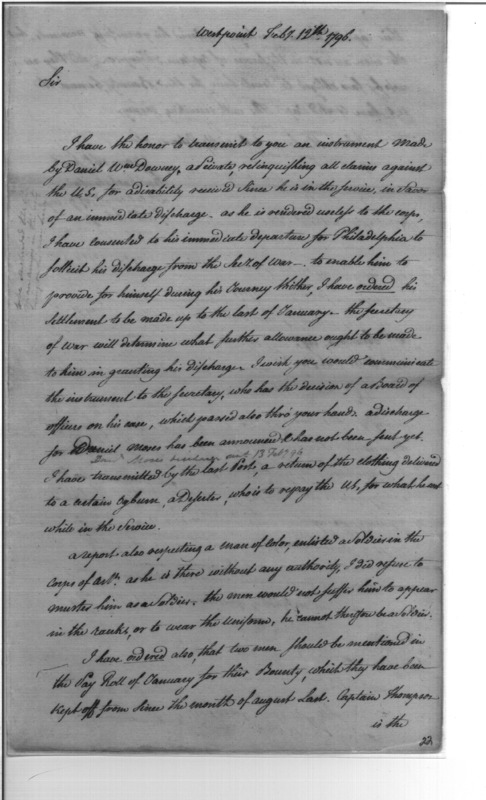 Westpoint Feby. 12th. 1796.
Sir
I have the honor to transmit to you an instrument made
by Daniel Wm Downey, a Private, relinquishing all claims against
the U.S. for a dissability received Since he is in the Service, in favor
of an immediate discharge. as he is rendered useless to the corps,
I have consented to his immediate departure for Philadelphia to
sollicit his discharge from the Secy. of War - to enable him to
provide for himself during his Journey thither, I have ordered his
Settlement to be made up to the last of January. the Secretary
of War will determine what further allowance ought to be made
to him in granting his discharge. I wish you would communicate
the instrument to the Secretary, who has the decision of a Board of
officers on his case, which passed also thro' your hands. a discharge
for Daniel Moses has been announced & has not been sent yet.
Moses discharge 13 Feby 96
I have transmitted by the last Post, a return of the clothing delivered
to a certain Ogburn, a Deserter, who is to repay the U.S. for what he got
while in the Service.
a report also respecting a man of Color, enlisted a Soldier in the
Corps of Arty. as he is there without any authority, I did refuse to
muster him as a Soldier. the men would not suffer him to appear
in the ranks, or to wear the Uniform, he cannot therefore be a Soldier.
I have ordered also, that two men should be mentioned in
the Pay Roll of January for their Bounty, which they have been
kept off from Since the month of august Last. Captain Thompson
is the
22